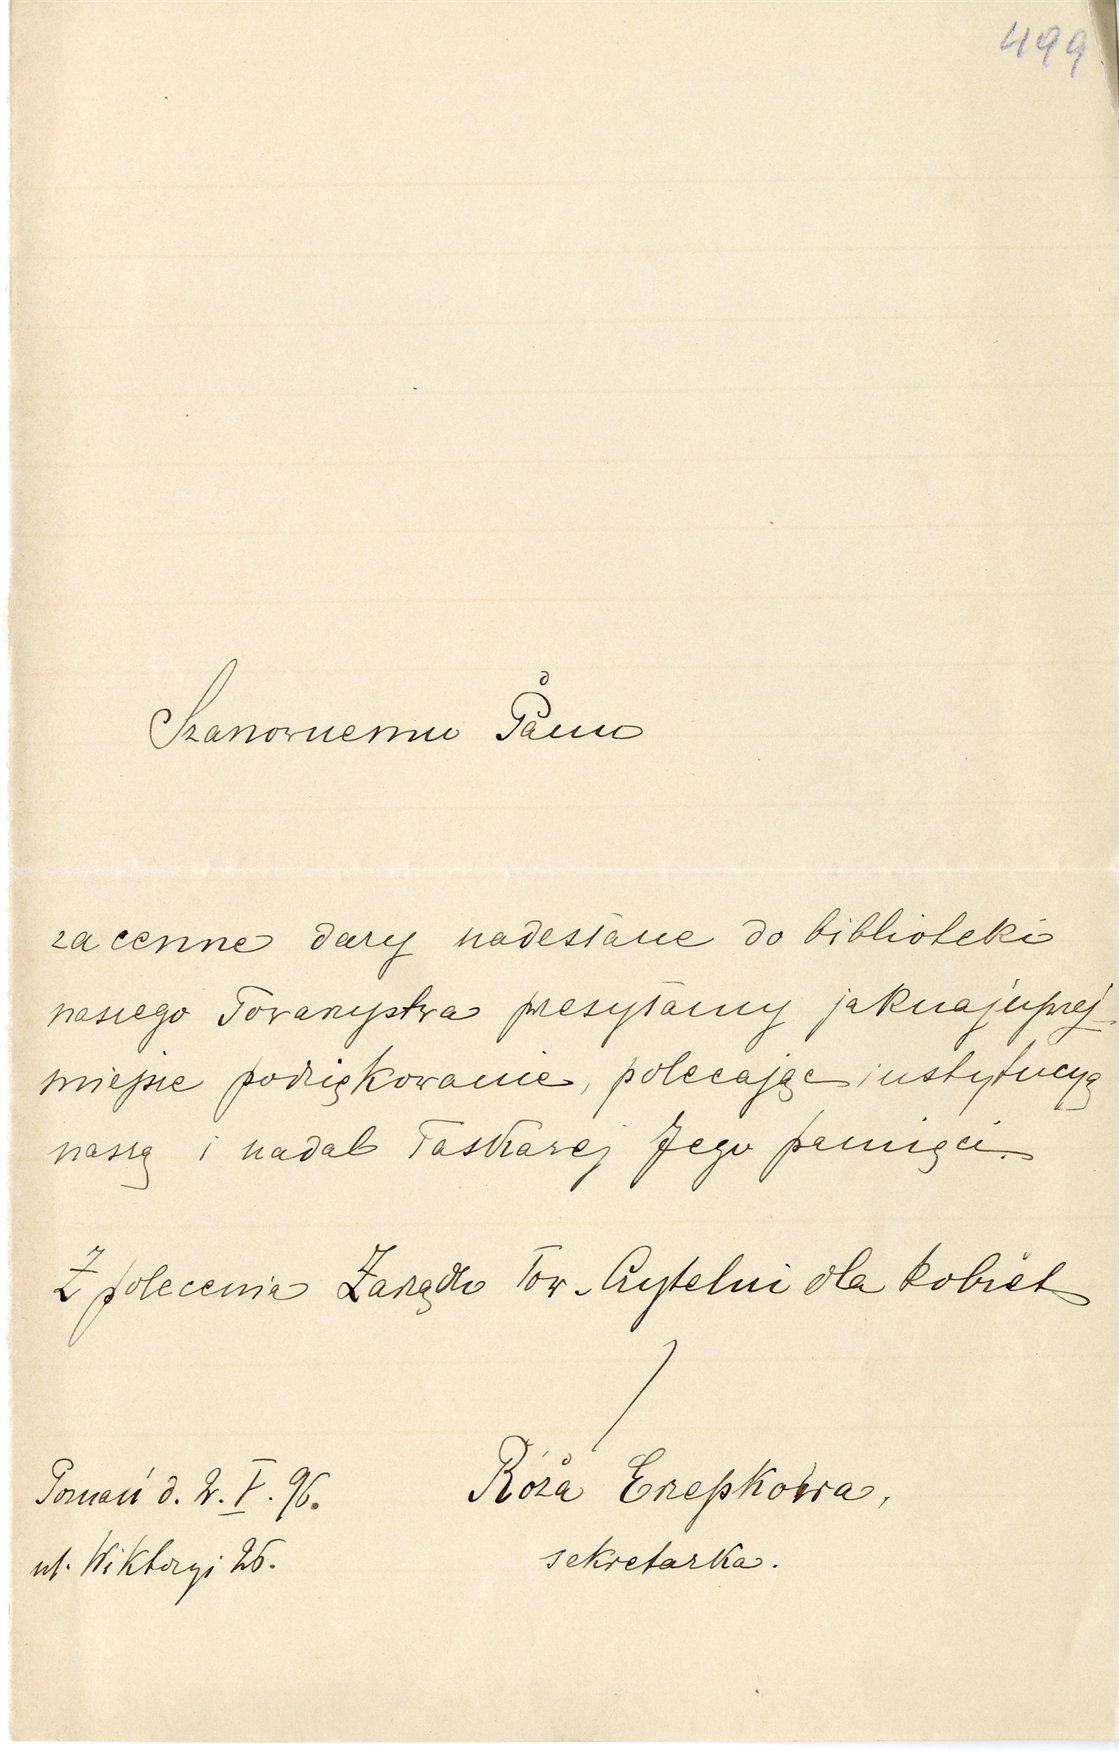 499.
Szanownemu Panu
za cenne dary nadesłane do biblioteki
naszego Towarzystwa przesyłamy jaknajuprzej-
miejsze podziękowanie, polecając instytucyą
naszą i nadal łaskawej Jego pamięci.
Z polecenia Zarządu Tow. Czytelni dla kobiet
Róża Erzepkówa,
sekretarka.
Poznań d. 2. V. 96.
ul. Wiktoryi 26.